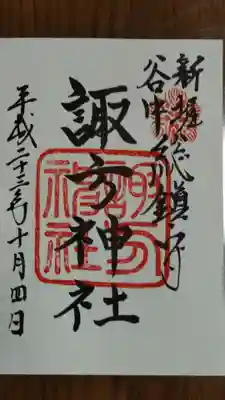 新堀
谷中総鎮守
諏方神社
諏方神社
平成二十三年十月四日